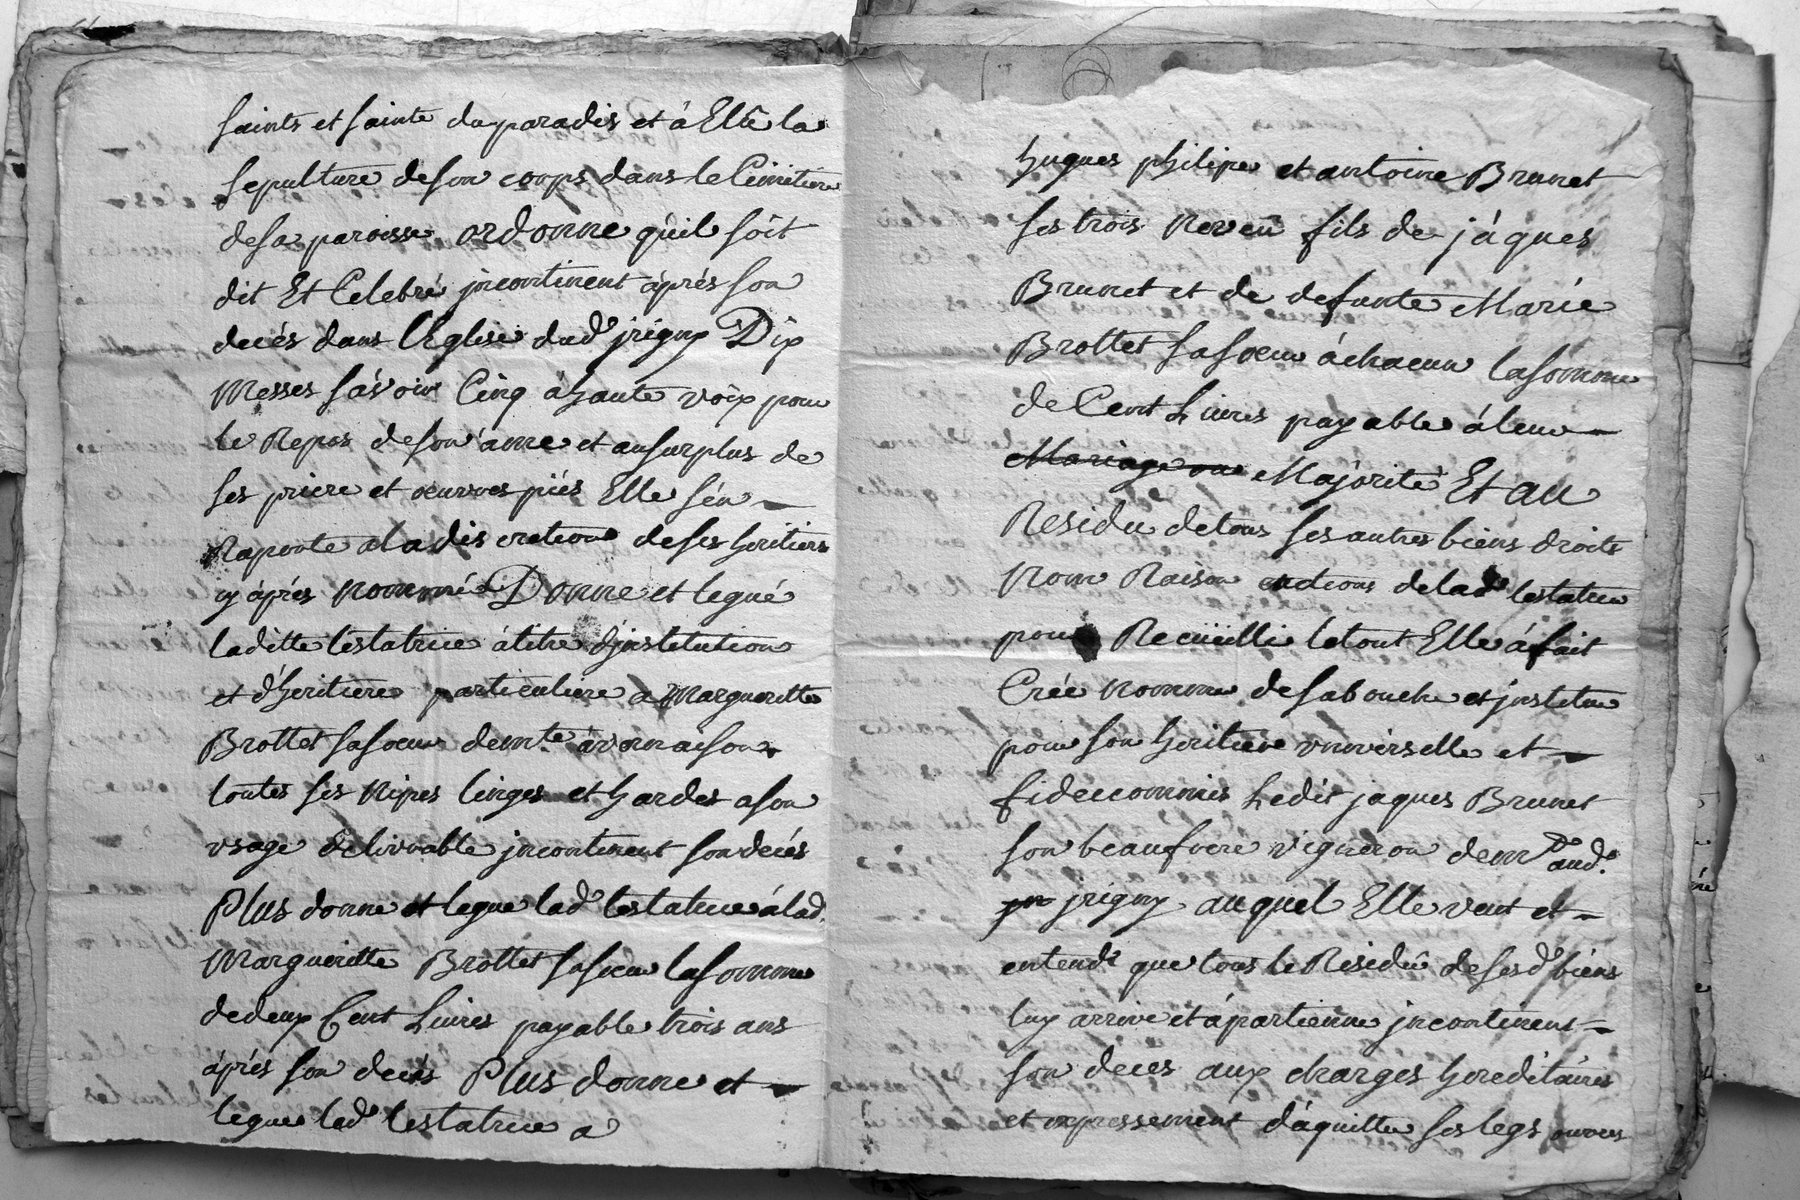 saints et sainte du paradis et á Elû la
sepulture de son corps dans le Cimetiere
de sa paroisse ordonne qu'il sôit
dit Et Celebré jncontinent áprés son
decés dans l'Eglise dud.e jrigny Dix
Messes sávoir Cinq á haute voix pour
le Repos de son áme et au surplus de
ses priere et oeuvres piés Elle s'én
Raporte a la discretion de ses heritiers
cy áprés nommé Donne et legué
laditte testatrice á titre d'jnstitution
et d'heritiere particuliere a Margueritte
Brottet sa soeur demte á vernaison
toutes ses Nipes linges et hardes a son
usage delivrable jncontinent son decés
Plus donne et legue lad.e testatrice á lad.
Margueritte Brottet sa soeur la somme
de deux Cent Livres payable trois ans
áprés son decés Plus donne et
legue lad.e testatrice a
hugues philipe et antoine Brunet
ses trois Neveu fils de jáques
Brunet et de defunte Marie
Brottet sa soeur á chacun la somme
de Cent Livres payable á leur
Mariage ou Majorité Et au
Residu de tous ses autres biens droits
Nom Raison actions de lad.e testatrice
pour Recuïilli le tout Elle á fait
Créé nomme de sa bouche et jnstitue
pour son heritiere universelle et
fideicommis Ledit jaques Brunet
son beaufrere vigneron dem.t aud.e
jn jrigny auquel Elle veut et
entend que tous le Residû de sesd.e biens
luy arrive et ápartienne jncontinent
son deces aux charges hereditaires
et expressement d'áquitter ses legs œuvres